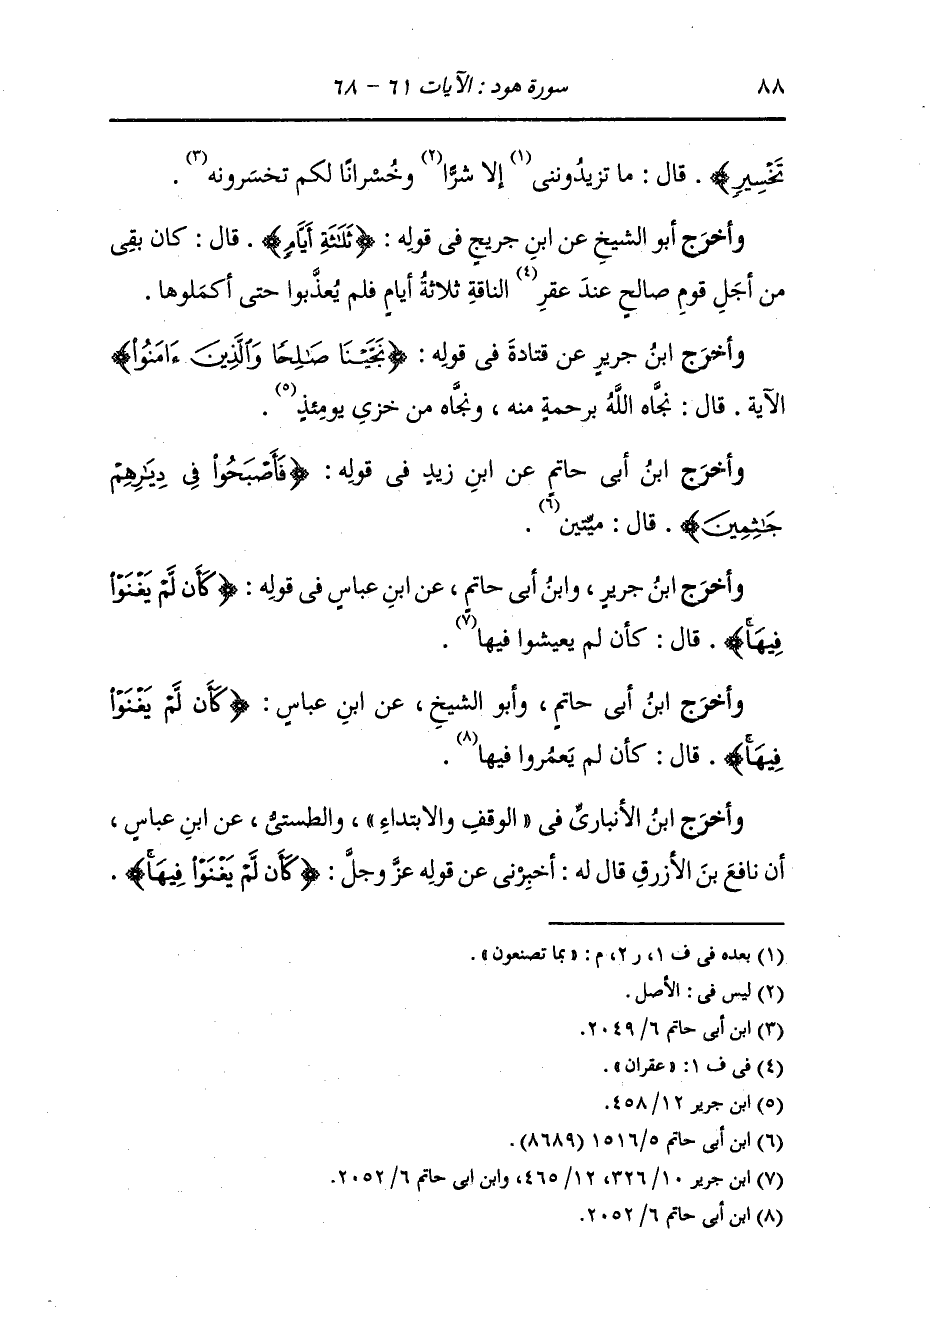 ٨٨ سورة هود : الآيات ٦١ - ٦٨
تَخْسِيرٍ﴾ . قال : ما تزيدُوننى(١) إلا شرًّا(٢) وخُسْرانًا لكم تخسَرونه(٣) .
وأخرَج أبو الشيخِ عن ابنِ جريجٍ فى قولِه : ﴿ثَلَـٰثَةِ أَيَّامٍ﴾ . قال : كان بقِى
من أجَلِ قومِ صالحٍ عندَ عقرِ(٤) الناقةِ ثلاثةُ أيامٍ فلم يُعذَّبوا حتى أكمَلوها .
وأخرَج ابنُ جريرٍ عن قتادةَ فى قولِه : ﴿نَجَّيْنَا صَـٰلِحًا وَٱلَّذِينَ ءَامَنُواْ﴾
الآية . قال : نجَّاه اللَّهُ برحمةٍ منه ، ونجَّاه من خزيِ يومِئذٍ(٥) .
وأخرَج ابنُ أبى حاتمٍ عن ابنِ زيدٍ فى قولِه : ﴿فَأَصْبَحُواْ فِى دِيَـٰرِهِمْ
جَـٰثِمِينَ﴾ . قال : ميِّتين(٦) .
وأخرَج ابنُ جريرٍ ، وابنُ أبى حاتمٍ ، عن ابنِ عباسٍ فى قولِه : ﴿كَأَن لَّمْ يَغْنَوْاْ
فِيهَآ﴾ . قال : كأن لم يعيشوا فيها(٧) .
وأخرَج ابنُ أبى حاتمٍ ، وأبو الشيخِ ، عن ابنِ عباسٍ : ﴿كَأَن لَّمْ يَغْنَوْاْ
فِيهَآ﴾ . قال : كأن لم يَعمُروا فيها(٨) .
وأخرَج ابنُ الأنبارىِّ فى « الوقفِ والابتداءِ » ، والطستىُّ ، عن ابنِ عباسٍ ،
أن نافعَ بنَ الأزرقِ قال له : أخبِرْنى عن قولِه عزَّ وجلَّ : ﴿كَأَن لَّمْ يَغْنَوْاْ فِيهَآ﴾ .
(١) بعده فى ف ١، ر ٢، م : « بما تصنعون » .
(٢) ليس فى : الأصل .
(٣) ابن أبى حاتم ٦/ ٢٠٤٩.
(٤) فى ف ١: « عقران » .
(٥) ابن جرير ١٢/ ٤٥٨.
(٦) ابن أبى حاتم ٥/ ١٥١٦ (٨٦٨٩) .
(٧) ابن جرير ١٠/ ٣٢٦، ١٢/ ٤٦٥، وابن ابى حاتم ٦/ ٢٠٥٢.
(٨) ابن أبى حاتم ٦/ ٢٠٥٢.